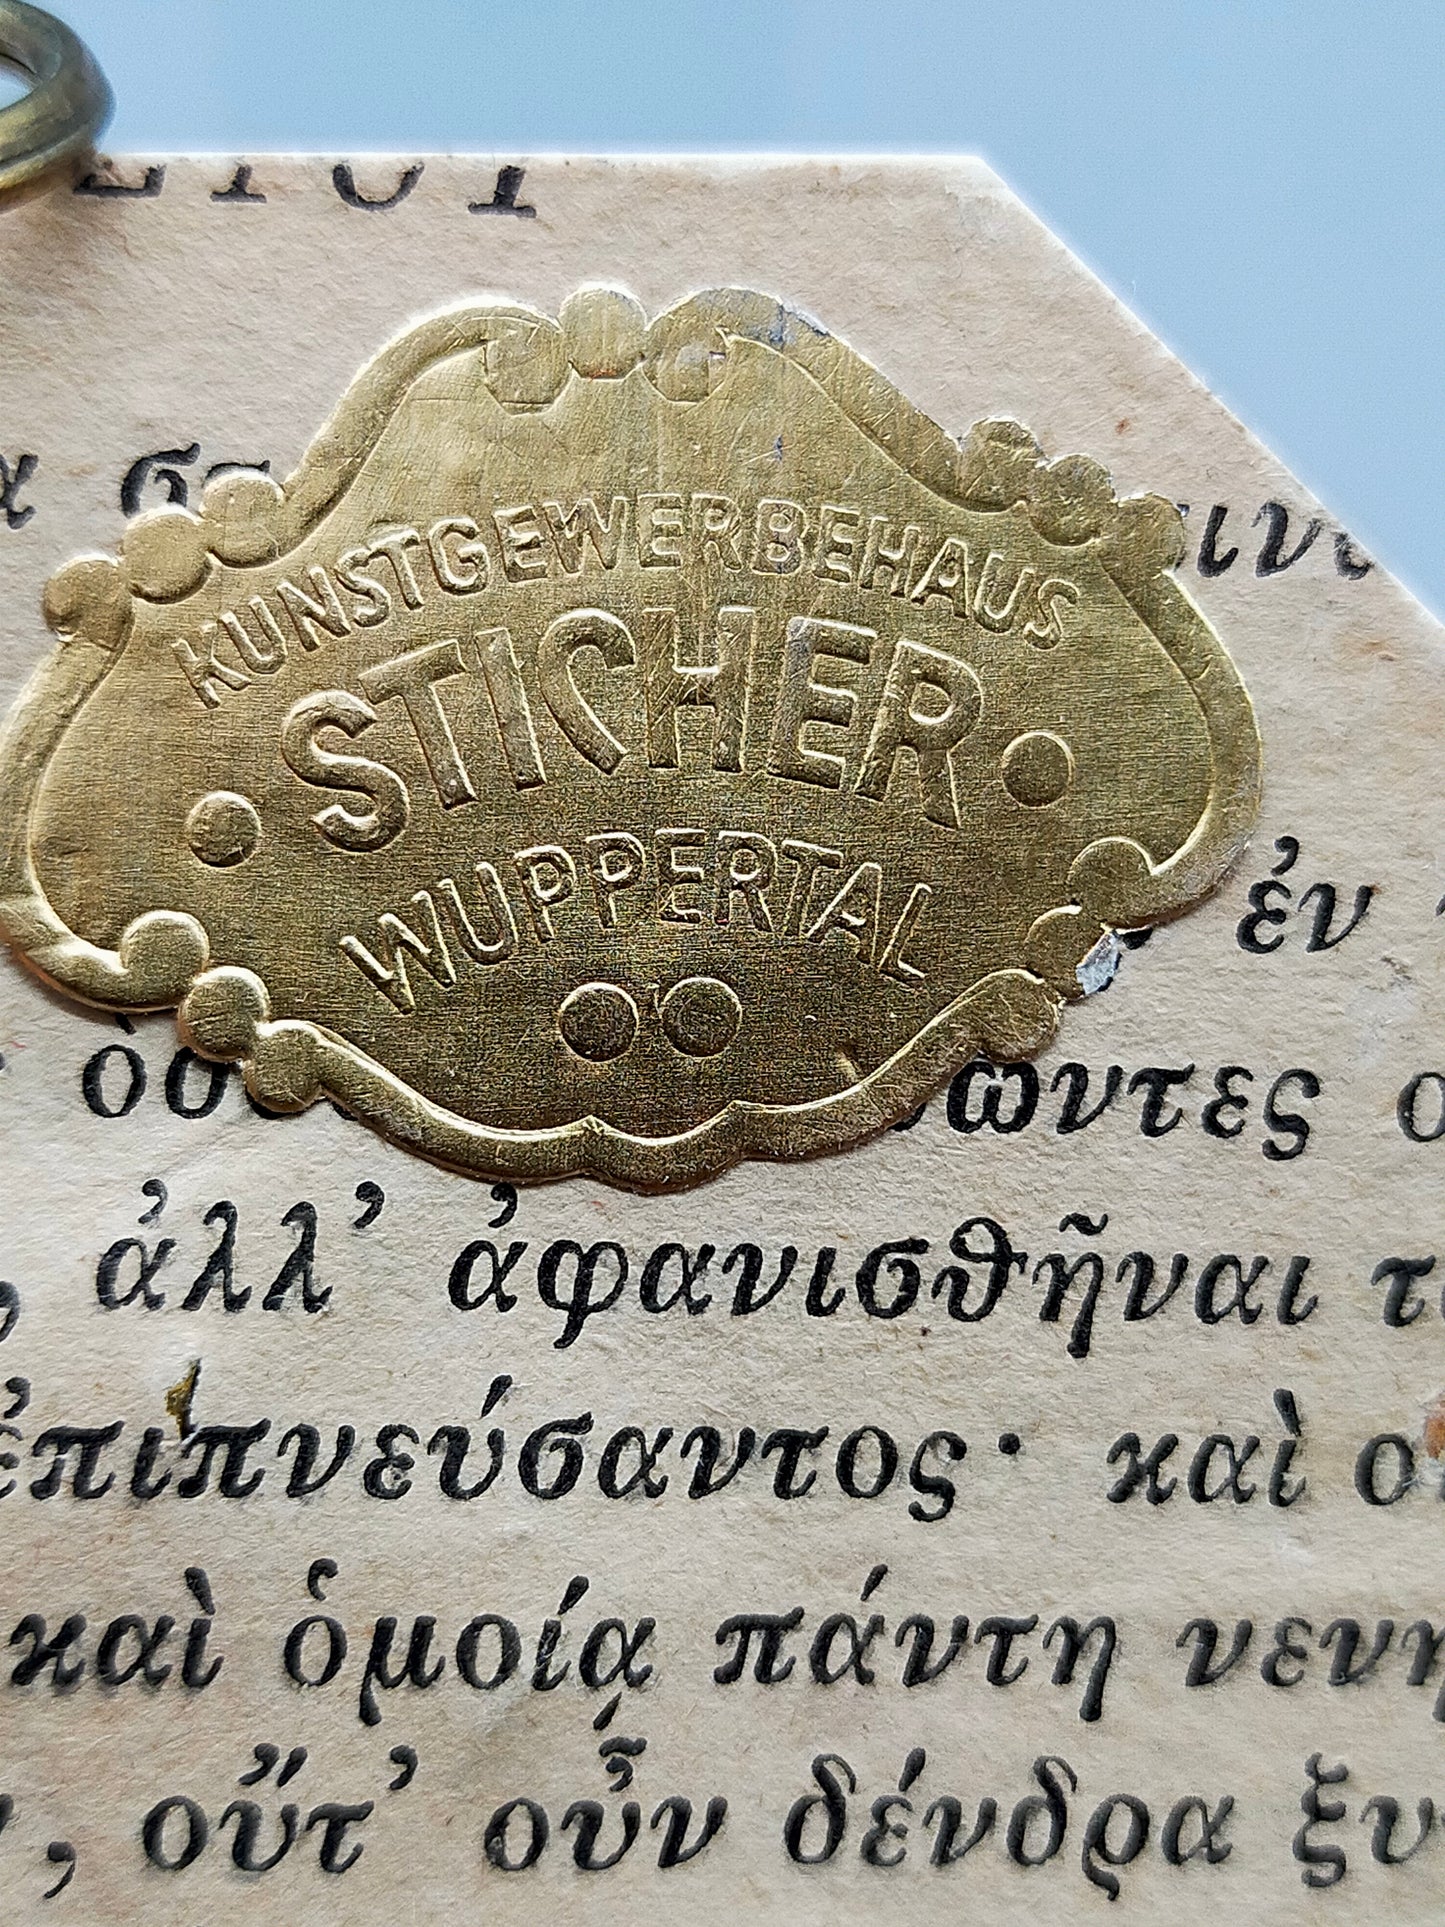 KUNSTGEWERBEHAUS
STICHER
WUPPERTAL
ἐν
ἀλλ’ ἀφανισθῆναι
ἐπιπνεύσαντος· καὶ
καὶ ὁμοίᾳ πάντη
, οὔτ’ οὖν δένδρα